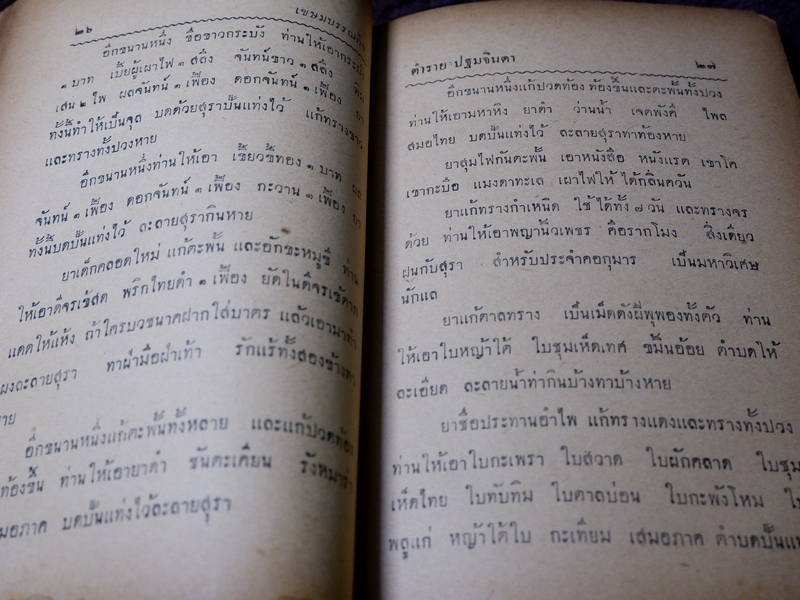 ๒๖ เขษมบรรณกิจ
อีกขนานหนึ่ง ชื่อขาวกระบัง ท่านให้เอากระบัง
๑ บาท เบี้ยผู้เผาไฟ ๑ สลึง จันทน์ขาว ๑ สลึง
เสน ๒ ไพ ผลจันทน์ ๑ เฟื้อง ดอกจันทน์ ๑ เฟื้อง ยา
ทั้งนี้ทำให้เป็นจุล บดด้วยสุราปั้นแท่งไว้ แก้ทรางขาว
และทรางทั้งปวงหาย
อีกขนานหนึ่งท่านให้เอา เขี้ยวขี้ทอง ๑ บาท ผล
จันทน์ ๑ เฟื้อง ดอกจันทน์ ๑ เฟื้อง กะวาน ๑ เฟื้อง ยา
ทั้งนี้บดปั้นแท่งไว้ ละลายสุรากินหาย
ยาเด็กคลอดใหม่ แก้ตะพั้น และอักขะหมูชี ท่าน
ให้เอาดีจรเข้สด พริกไทยดำ ๑ เฟื้อง ยัดในดีจรเข้ตาก
แดดให้แห้ง ถ้าใครบวชนาคฝากใส่บาตร แล้วเอามาทำ
ผงละลายสุรา ทาฝ่ามือฝ่าเท้า รักแร้ทั้งสองข้างทา
หาย
อีกขนานหนึ่งแก้ตะพั้นทั้งหลาย และแก้ปวดท้อง
ท้องขึ้น ท่านให้เอายาดำ ชันตะเคียน รังหมาร่า
เสมอภาค บดปั้นแท่งไว้ละลายสุรา
ตำรายาปฐมจินดา ๒๗
อีกขนานหนึ่งแก้ปวดท้อง ท้องขึ้นและตะพั้นทั้งปวง
ท่านให้เอามหาหิง ยาดำ ว่านน้ำ เจตพังคี ไพล
สมอไทย บดปั้นแท่งไว้ ละลายสุราทาท้องหาย
ยาสุมไฟกันตะพั้น เอาหนังสือ หนังแรด เขาโค
เขากะบือ แมงดาทะเล เผาไฟให้ได้กลิ่นควัน
ยาแก้ทรางกำเหนิด ใช้ได้ทั้ง ๗ วัน และทรางจร
ด้วย ท่านให้เอาพญานิ้วเพชร คือรากโมง สิ่งเดียว
ฝนกับสุรา สำหรับประจำคอกุมาร เป็นมหาวิเศษ
นักแล
ยาแก้ตาลทราง เป็นเม็ดดังฝีพุพองทั้งตัว ท่าน
ให้เอาใบหญ้าใต้ ใบชุมเห็ดเทศ ขมิ้นอ้อย ตำบดให้
ละเอียด ละลายน้ำท่ากินบ้างทาบ้างหาย
ยาชื่อประทานอำไพ แก้ทรางแดงและทรางทั้งปวง
ท่านให้เอาใบกะเพรา ใบสวาด ใบผักคลาด ใบชุม
เห็ดไทย ใบทับทิม ใบตาลบ่อน ใบกะพังโหม
พลูแก่ หญ้าใต้ใบ กะเทียม เสมอภาค ตำบดปั้นแท่ง